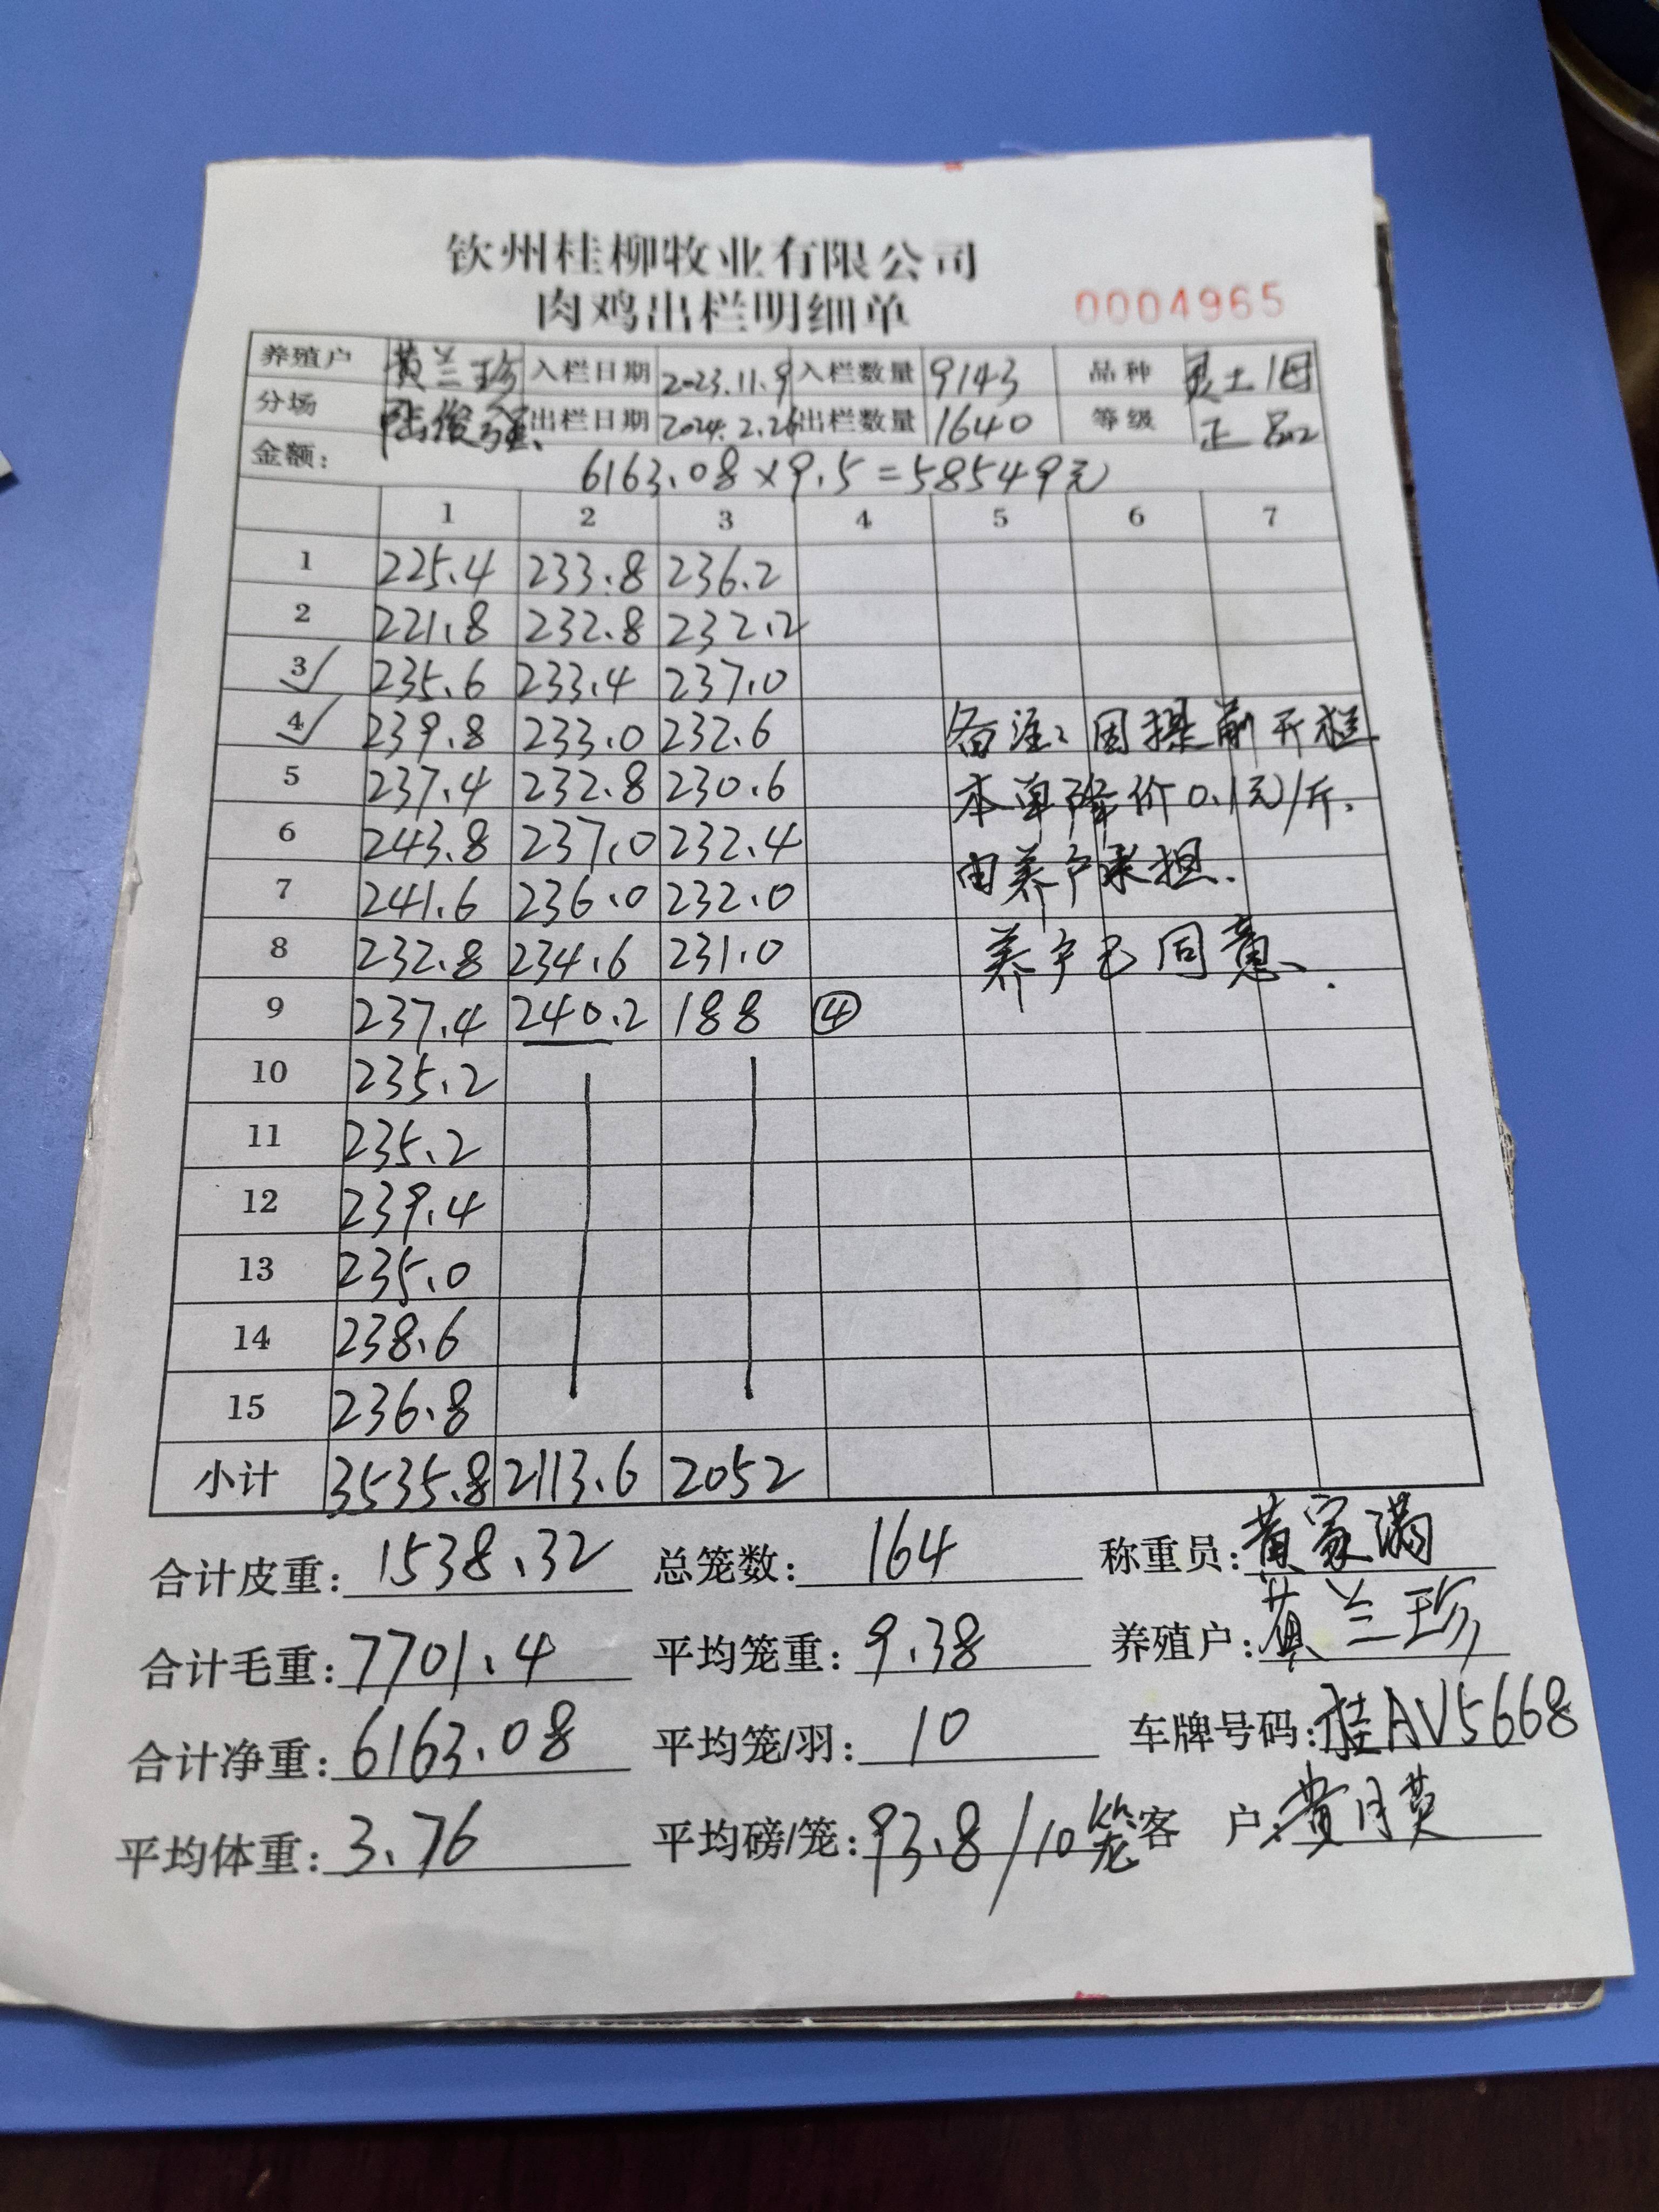 钦州桂柳牧业有限公司
肉鸡出栏明细单 0004965
养殖户 黄兰珍 入栏日期 2023.11.9 入栏数量 9143 品种 灵土1母
分场 陆俊强 出栏日期 2024.2.26 出栏数量 1640 等级 正品
金额: 6163.08×9.5=58549元
1 2 3 4 5 6 7
1 225.4 233.8 236.2
2 221.8 232.8 232.2
3 235.6 233.4 237.0
4 239.8 233.0 232.6 备注:因提前开栏
5 237.4 232.8 230.6 本单降价0.1元/斤.
6 243.8 237.0 232.4 由养户承担.
7 241.6 236.0 232.0
8 232.8 234.6 231.0 养户已同意.
9 237.4 240.2 188 ④
10 235.2
11 235.2
12 239.4
13 235.0
14 238.6
15 236.8
小计 3535.8 2113.6 2052
合计皮重: 1538.32 总笼数: 164 称重员: 黄家满
合计毛重: 7701.4 平均笼重: 9.38 养殖户: 黄兰珍
合计净重: 6163.08 平均笼/羽: 10 车牌号码: 桂AV5668
平均体重: 3.76 平均磅/笼: 93.8/10笼 客户: 黄月英